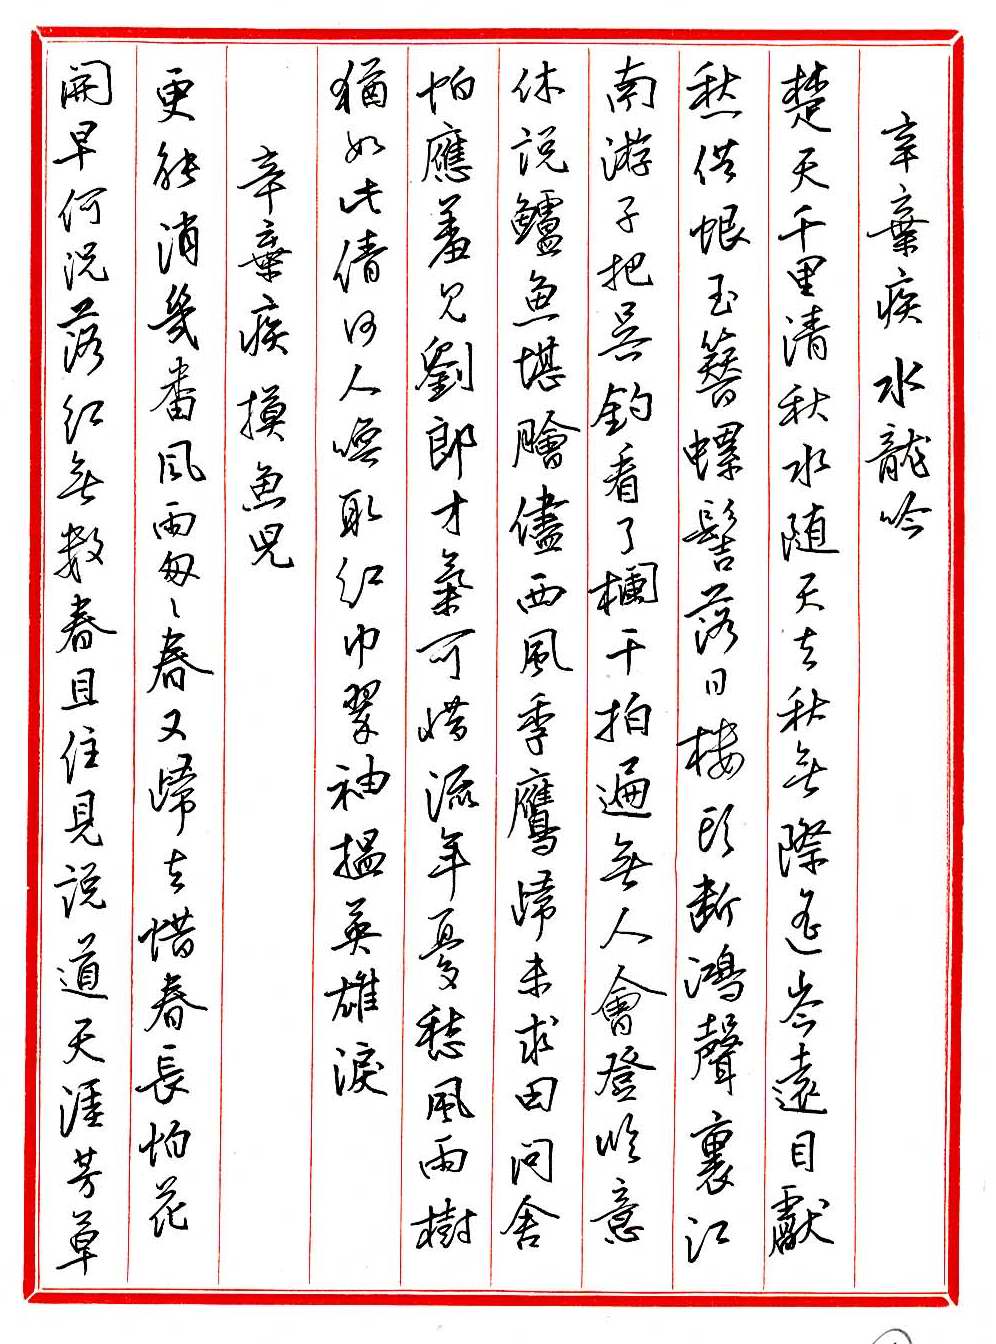 辛棄疾 水龍吟
楚天千里清秋水随天去秋無際遙岑遠目獻
愁供恨玉簪螺髻落日樓頭斷鴻聲裏江
南游子把吳鈎看了欄干拍遍無人會登臨意
休説鱸魚堪膾儘西風季鷹歸未求田問舍
怕應羞見劉郎才氣可惜流年憂愁風雨樹
猶如此倩何人喚取紅巾翠袖揾英雄淚
辛棄疾 摸魚兒
更能消幾番風雨匆〻春又歸去惜春長怕花
開早何況落紅無數春且住見説道天涯芳草